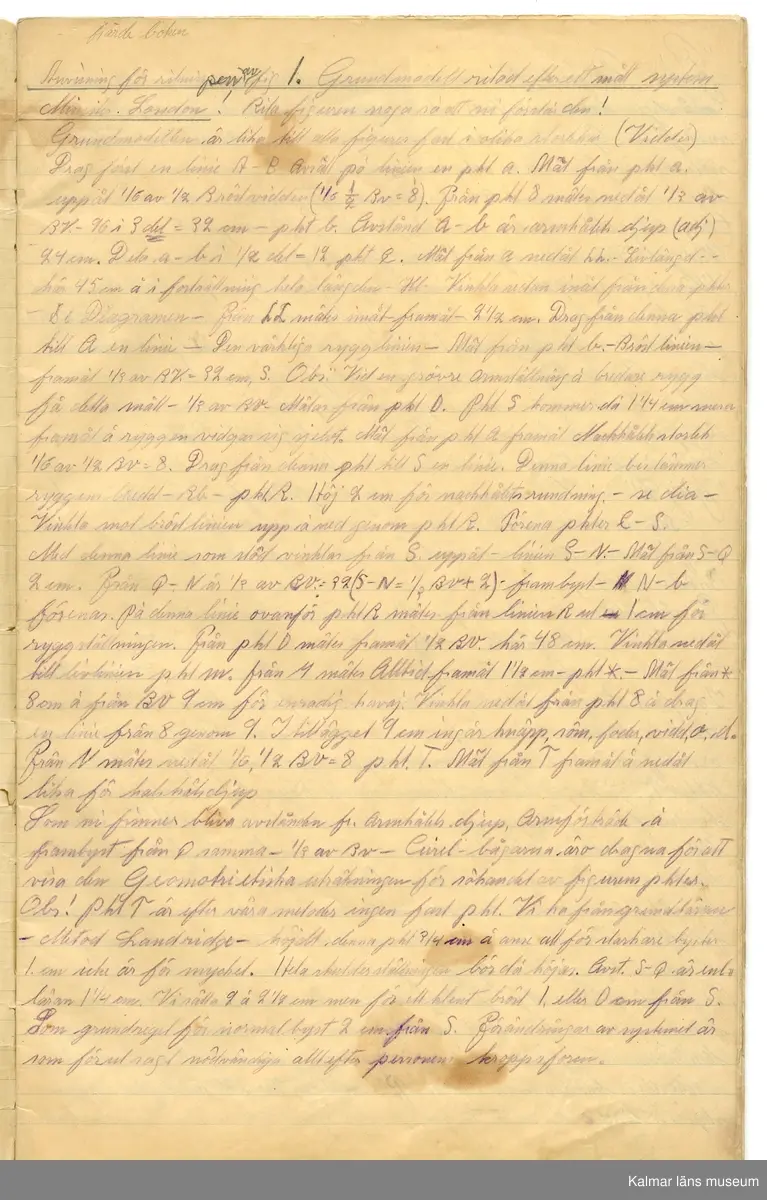 Färde boken
Anvisning för ritningen av fig 1. Grundmodell ritad efter ett mått system
Minister. London! Rita figuren noga så att ni förstår den!
Grundmodellen är lika till alla figurer fast i olika storlekar (Vidder)
Drag först en linie A - B Avsätt på linien en pkt a. Mät från pkt a.
uppåt 1/6 av 1/2 Bröstvidden (1/6 1/2 Bv = 8). Från pkt 8 mätes nedåt 1/3 av
BV - 96 i 3 del = 32 cm - pkt b. Avstånd A - b är armhåls djup (adj)
24 cm. Dela a - b i 1/2 del = 12 pkt E. Mät från a nedåt LL. - Livlängd -
här 45 cm å i fortsättning hela längden - Hl. Vinkla sedan inåt från dessa pkter
- Se Diagramen - Från LL mätes inåt framåt - 2 1/2 cm. Drag från denna pkt
till A en linie - Den värkliga rygglinien - Mät från pkt b. - Bröstlinien -
framåt 1/3 av BV = 32 cm, S. Obs! Vid en grövre armställning å bredare rygg
få detta mått - 1/3 av BV - Mätas från pkt D. Pkt S kommer då 1 1/4 cm mera
framåt å ryggen vidgar sig igenom. Mät från pkt A framåt Nackhåls storlek
1/6 av 1/2 BV = 8. Drag från denna pkt till S en linie. Denna linie bestämmer
ryggens bredd - Rb - pkt R. Höj 2 cm för nackhålets rundning, - se dia -
Vinkla mot bröstlinien upp å ned genom pkt R. Förena pkter E - S.
Med denna linie som stöd vinklas från S. uppåt - linien S - N - Mät från S - Q
2 cm. Från Q - N är 1/3 av BV = 32 (S - N = 1/3 BV + 2) - frambyst - N - b
förenas. På denna linie ovanför pkt R mätes från linien R ut - 1 cm för
ryggställningen. Från pkt D mätes framåt 1/2 BV. här 48 cm. Vinkla nedåt
till livlinien pkt m. Från 4 mätes Alltid framåt 1 1/2 cm - pkt *. - Mät från *
8 cm å från BV 9 cm för enradig kavaj. Vinkla nedåt från pkt 8 å drag
en linie från 8 genom 9. I tillägget 9 cm ingår knäpp, söm, foder, vidd o. d.
Från N mätes nedåt 1/6, 1/2 BV = 8 pkt. T. Mät från T framåt å nedåt
lika för halshålsdjup
Som ni finner bliva avstånden fr. Armhåls djup, Armförträde å
frambyst från D samma - 1/3 av Bv - Cirkel bågarna äro dragna för att
visa den Geometrietiska uträkningen för sökandet av figurens pkter.
Obs! Pkt T är efter våra metoder ingen fast pkt. Vi ha från grundläran
- Metod Landridge - höjdt denna pkt 3/4 cm å anse att för starkare byster
1 cm icke är för mycket. Hela skulderställningen bör då höjas. Avst. S - Q är enl.
läran 1 1/4 cm. Vi sätta 2 à 2 1/2 cm men för ett klent bröst 1. eller 0 cm från S.
Som grundregel för normal byst 2 cm från S. Förändringar av systemet är
som förut sagt nödvändiga allt efter personens kroppsform.
Kalmar läns museum